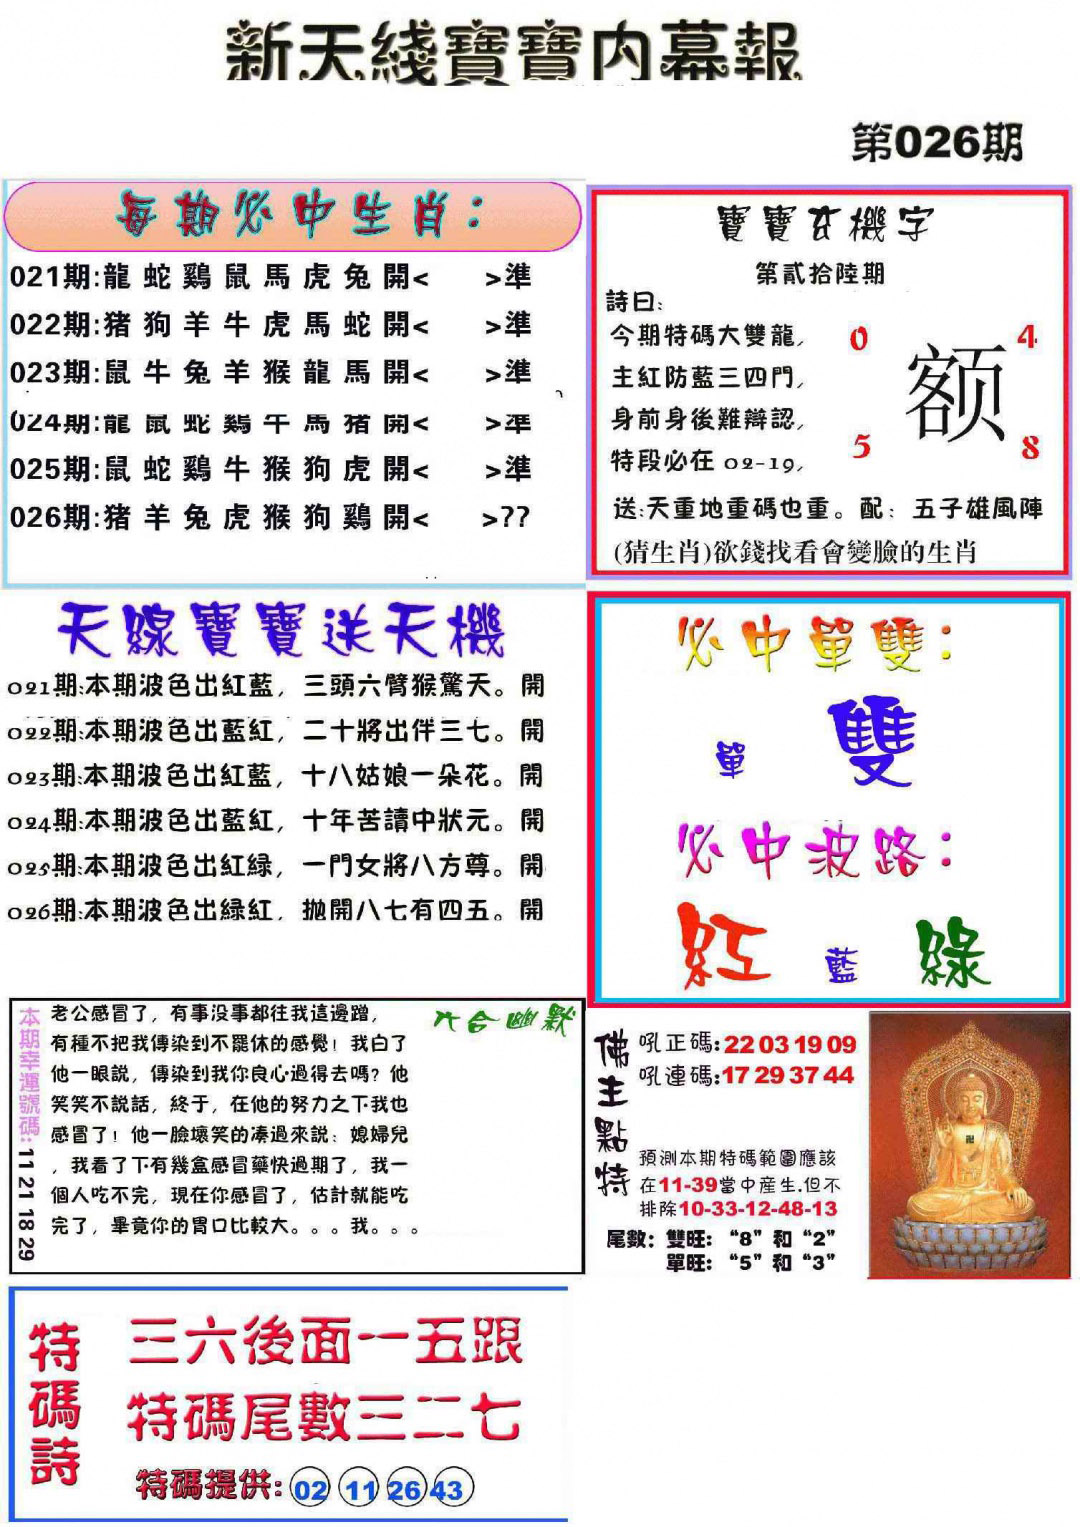 新天綫寶寶内幕報
第026期
每期必中生肖：
021期:龍 蛇 鷄 鼠 馬 虎 兔 開< >準
022期:猪 狗 羊 牛 虎 馬 蛇 開< >準
023期:鼠 牛 兔 羊 猴 龍 馬 開< >準
024期:龍 鼠 蛇 鷄 牛 馬 猪 開< >準
025期:鼠 蛇 鷄 牛 猴 狗 虎 開< >準
026期:猪 羊 兔 虎 猴 狗 鷄 開< >??
寶寶玄機字
第貳拾陸期
詩曰:
今期特碼大雙龍,
主紅防藍三四門,
身前身後難辯認,
特段必在 02-19,
0 4
额
5 8
送:天重地重碼也重。配：五子雄風陣
(猜生肖)欲錢找看會變臉的生肖
天線寶寶送天機
021期:本期波色出紅藍，三頭六臂猴驚天。開
022期:本期波色出藍紅，二十將出伴三七。開
023期:本期波色出紅藍，十八姑娘一朵花。開
024期:本期波色出藍紅，十年苦讀中狀元。開
025期:本期波色出紅緑，一門女將八方尊。開
026期:本期波色出緑紅，抛開八七有四五。開
必中單雙：
單 雙
必中波路：
紅 藍 綠
本期幸運號碼:11 21 18 29
六合幽默
老公感冒了，有事没事都往我這邊蹭，
有種不把我傳染到不罷休的感覺！我白了
他一眼説，傳染到我你良心過得去嗎？他
笑笑不説話，終于，在他的努力之下我也
感冒了！他一臉壞笑的凑過來説：媳婦兒
，我看了下有幾盒感冒藥快過期了，我一
個人吃不完，現在你感冒了，估計就能吃
完了，畢竟你的胃口比較大。。。我。。。
佛主點特
吼正碼:22 03 19 09
吼連碼:17 29 37 44
預測本期特碼範圍應該
在11-39當中産生.但不
排除10-33-12-48-13
尾數：雙旺：“8”和“2”
單旺：“5”和“3”
特碼詩
三六後面一五跟
特碼尾數三二七
特碼提供: 02 11 26 43